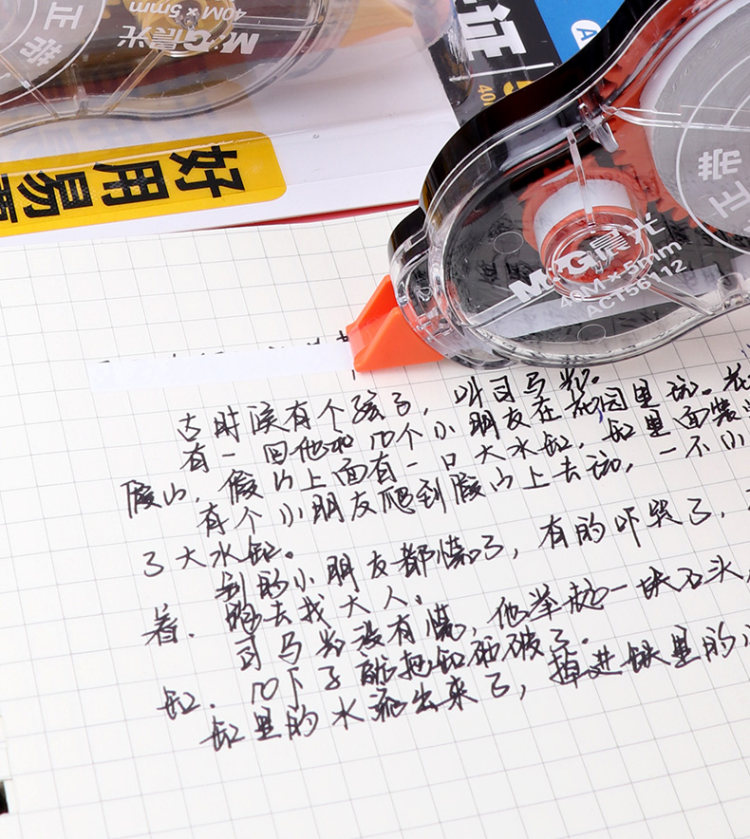 40M×5mm
M&G晨光
正
证
40
A
好用易
正
M&G晨光
40M×5mm
ACT56112
古时候有个孩子，叫司马光。
有一回他和几个小朋友在花园里玩。花
假山，假山上面有一口大水缸，缸里面装
有个小朋友爬到假山上去玩，一不小
了大水缸。
别的小朋友都慌了，有的吓哭了，
着．跑去找大人。
司马光没有慌，他举起一块石头，
缸．几下子就把缸砸破了。
缸里的水流出来了，掉进缸里的小